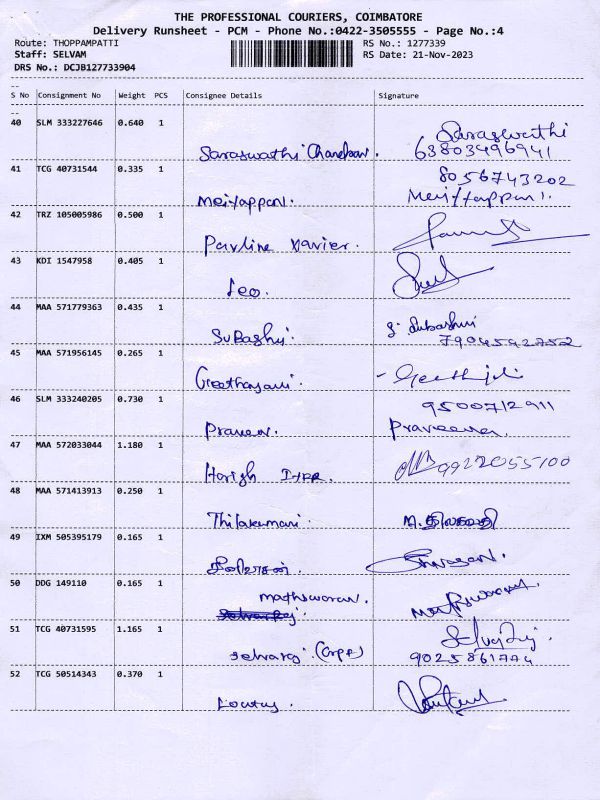 THE PROFESSIONAL COURIERS, COIMBATORE
Delivery Runsheet - PCM - Phone No.:0422-3505555 - Page No.:4
Route: THOPPAMPATTI RS No.: 1277339
Staff: SELVAM RS Date: 21-Nov-2023
DRS No.: DCJB127733904
--
S No Consignment No Weight PCS Consignee Details Signature
--
40 SLM 333227646 0.640 1
Saraswathi
Saraswathi Chandran. 63803496941
41 TCG 40731544 0.335 1
8056743202
Meiyappan. Meiyappan.
42 TRZ 105005986 0.500 1
Pavline Xavier.
43 KDI 1547958 0.405 1
Leo.
44 MAA 571779363 0.435 1
Subashri. S. Subashri
7904592752
45 MAA 571956145 0.265 1
46 SLM 333240205 0.730 1
9500712911
Praveen. Praveena.
47 MAA 572033044 1.180 1
Harish 9922055100
48 MAA 571413913 0.250 1
Thilakamani.
49 IXM 505395179 0.165 1
சீனிவாசன். Srinivasan.
50 DDG 149110 0.165 1
Matheswaran. Matheswaran
51 TCG 40731595 1.165 1
Selvaraj
Selvaraj. (CRPF) 9025861774
52 TCG 50514343 0.370 1